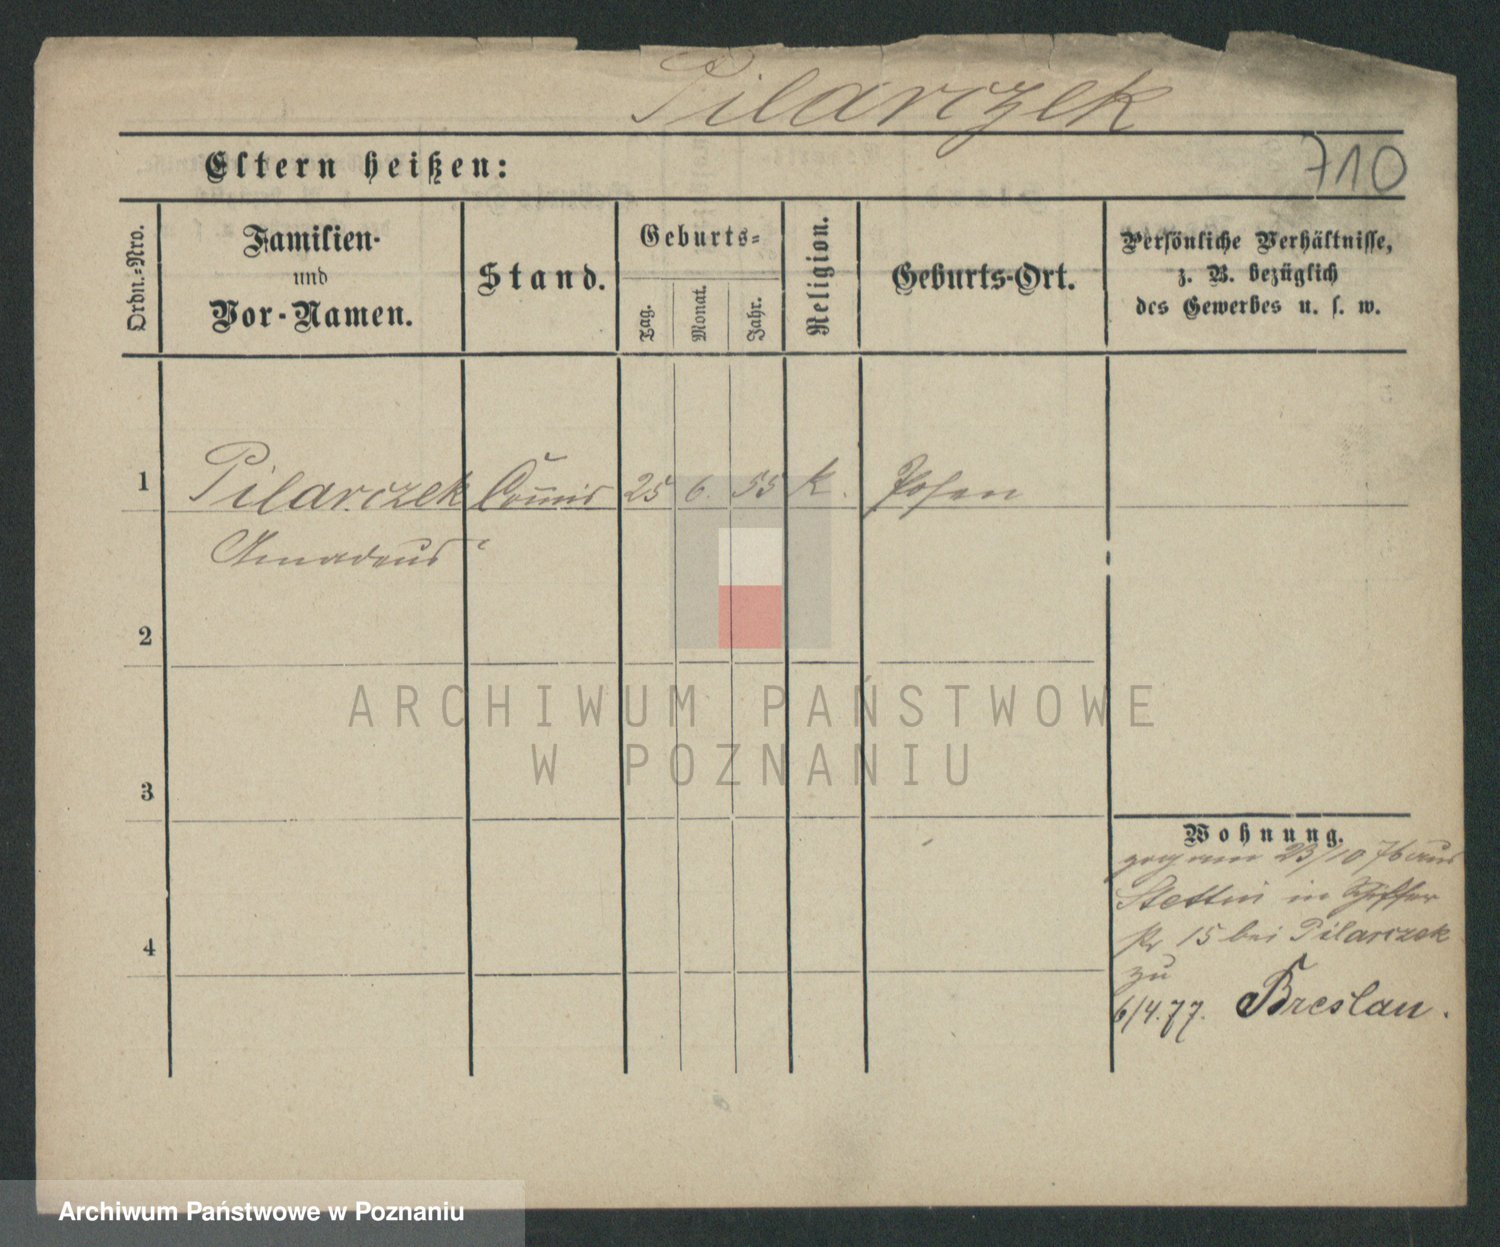 Pilarczek
710
Eltern heißen:
Ordn.=Nro.
Familien-
und
Vor-Namen.
Stand.
Geburts=
Tag.
Monat.
Jahr.
Religion.
Geburts-Ort.
Persönliche Verhältnisse,
z. B. bezüglich
des Gewerbes u. s. w.
1 Pilarczek Com̅is 25 6. 55 k. Posen
Amadeus
2
3
4
Wohnung.
am 23/10 76 aus
Stettin in
15 bei Pilarczek
zu
6/4.77. Breslau.
ARCHIWUM PAŃSTWOWE
W POZNANIU
Archiwum Państwowe w Poznaniu